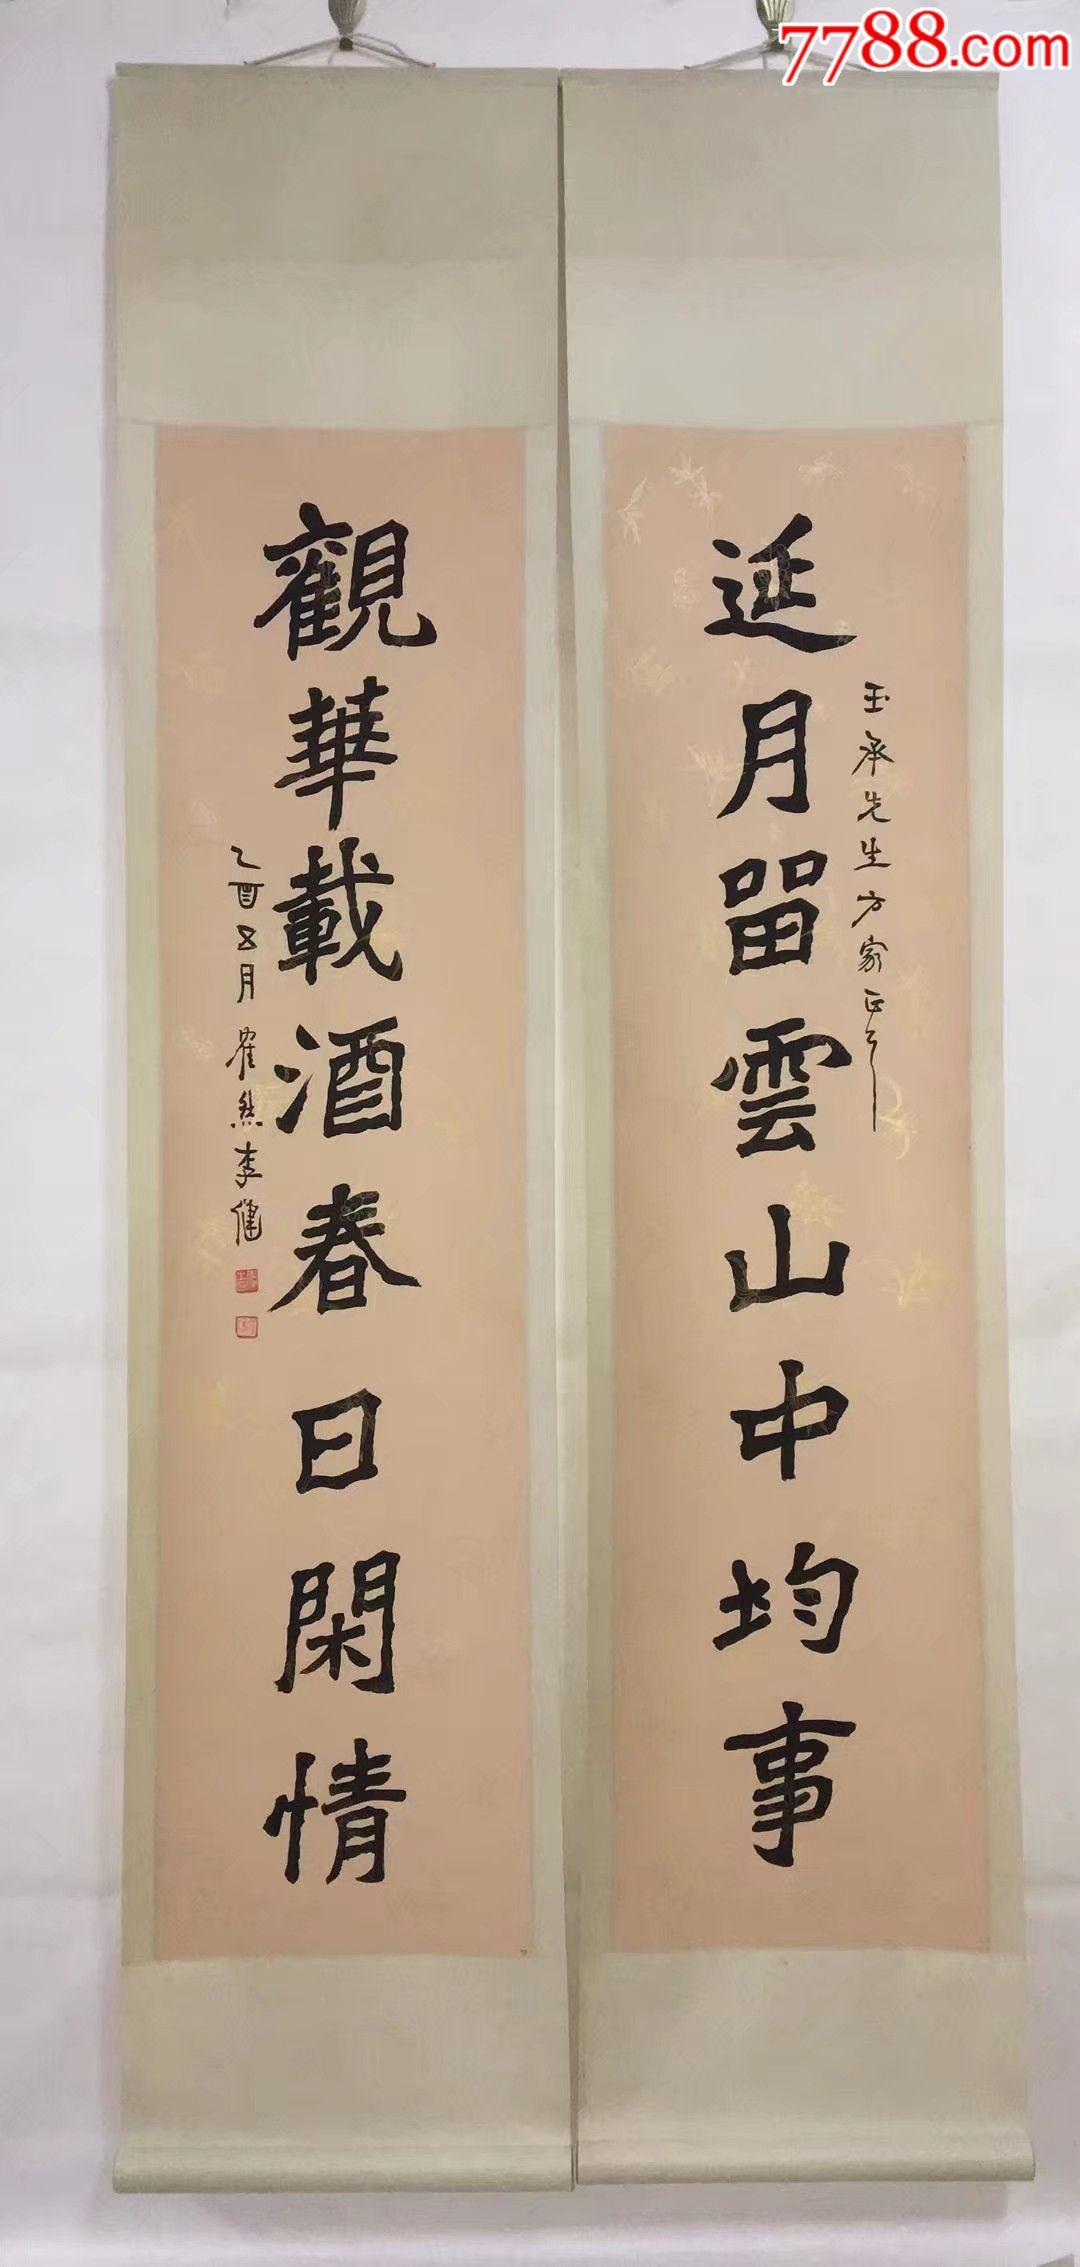 7788.com
延月留雲山中均事
玉承先生方家正之
觀華載酒春日閑情
乙酉五月崔然李健